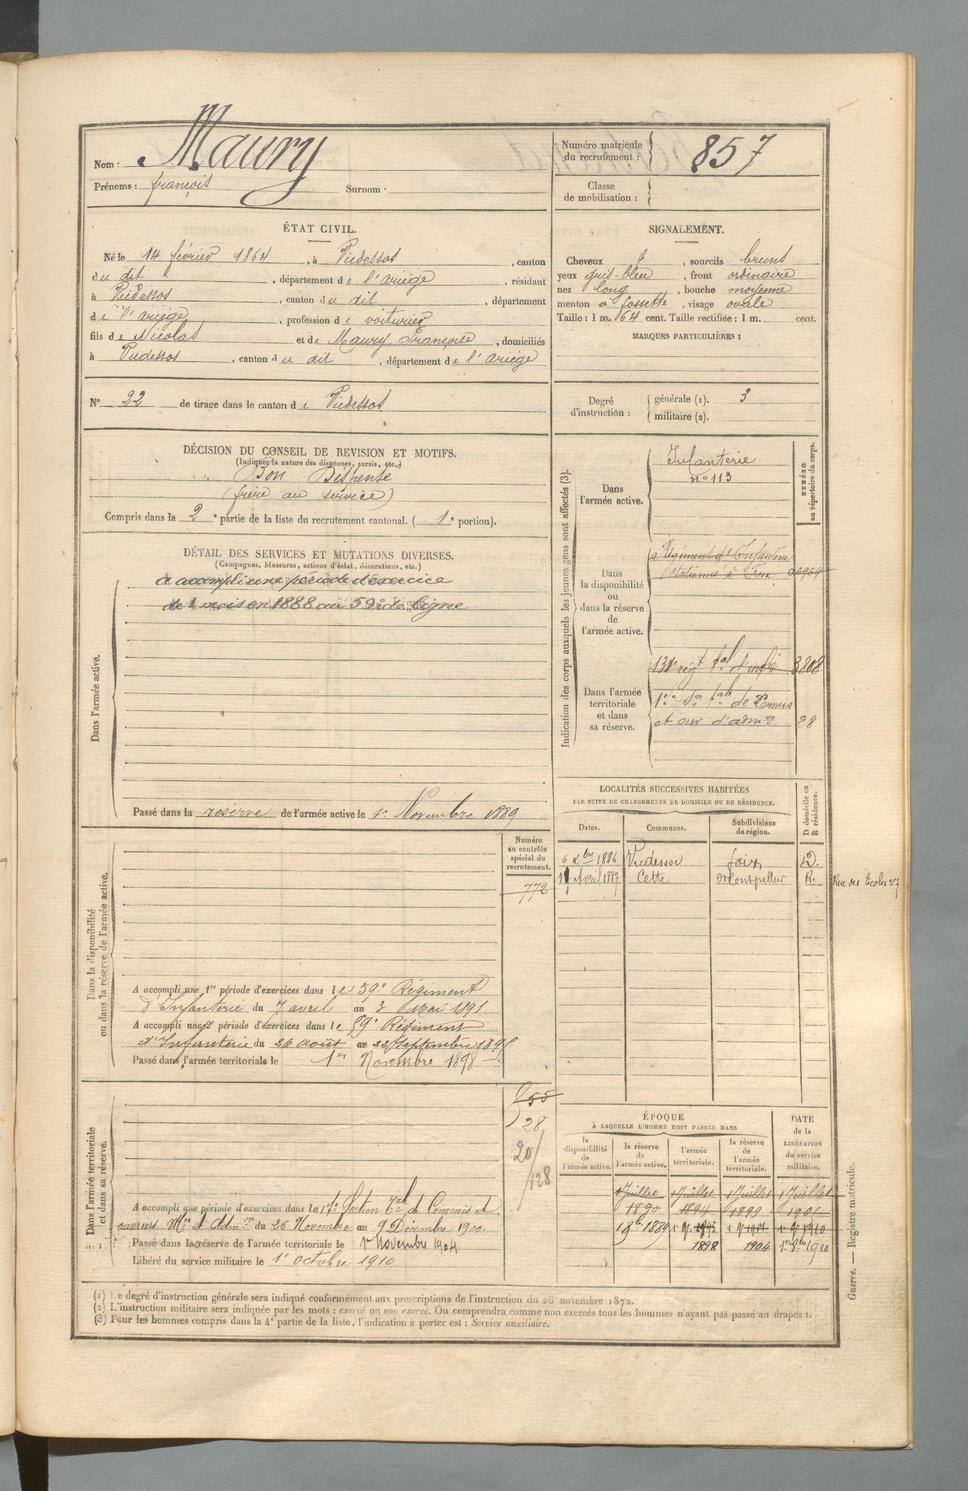 Nom : Maury
Prénoms : françois Surnom :
Numéro matricule
du recrutement : 857
Classe
de mobilisation :
ÉTAT CIVIL.
Né le 14 février 1864, à Vicdessos, canton
du dit, département de l'ariège, résidant
à Vicdessos, canton du dit, département
de l'ariège, profession de voiturier
fils de Nicolas et de Maury Françoise, domiciliés
à Vicdessos, canton du dit, département de l'ariège
N° 22 de tirage dans le canton de Vicdessos
SIGNALEMENT.
Cheveux , sourcils bruns
yeux gris-bleu, front ordinaire
nez long, bouche moyenne
menton à fossette, visage ovale
Taille : 1 m. 64 cent. Taille rectifiée : 1 m. cent.
MARQUES PARTICULIÈRES :
Degré
d'instruction :
générale (1). 3
militaire (2).
DÉCISION DU CONSEIL DE REVISION ET MOTIFS.
(Indiquer la nature des dispenses, sursis, etc.)
Bon Dispensé
(frère au service)
Compris dans la 2e partie de la liste du recrutement cantonal. ( 1e portion).
DÉTAIL DES SERVICES ET MUTATIONS DIVERSES.
(Campagnes, blessures, actions d'éclat, décorations, etc.)
Dans l'armée active.
a accompli une période d'exercice
de 1 mois en 1888 au 59e de ligne
Passé dans la réserve de l'armée active le 1er Novembre 1889
Indication des corps auxquels les jeunes gens sont affectés (3).
NUMÉRO
au répertoire du corps.
Dans
l'armée active.
Infanterie
n° 113
Dans
la disponibilité
ou
dans la réserve
de
l'armée active.
Régiment d'Infanterie
stationné à Foix
Dans l'armée
territoriale
et dans
sa réserve.
regt tal d'infie 3808
1ère son tale de Commis
et ouv. d'admon 28
LOCALITÉS SUCCESSIVES HABITÉES
PAR SUITE DE CHANGEMENTS DE DOMICILE OU DE RÉSIDENCE.
Dates. Communes. Subdivisions
de région.
D domicile ou
R résidence.
6 xbre 1886 Vicdessos Foix D.
1887 Cette Montpellier R. Rue des Ecoles 27
Dans la disponibilité
ou dans la réserve de l'armée active.
Numéro
au contrôle
spécial du
recrutement.
772
A accompli une 1re période d'exercices dans le 59e Régiment
d'Infanterie du 7 avril au 3 mai 1891
A accompli une 2e période d'exercices dans le 59e Régiment
d'Infanterie du 26 août au 22 Septembre
Passé dans l'armée territoriale le 1er Novembre 1898
Dans l'armée territoriale
et dans sa réserve.
55
28
20/
/128
A accompli une période d'exercices dans la 1re Section Tale de Commis et
ouvriers Mres d'Admon du 26 Novembre au 9 Décembre 1900.
Passé dans la réserve de l'armée territoriale le 1er Novembre 1904
Libéré du service militaire le 1er octobre 1910
ÉPOQUE
À LAQUELLE L'HOMME DOIT PASSER DANS
la
disponibilité
de
l'armée active.
la réserve
de
l'armée active.
l'armée
territoriale.
la réserve
de
l'armée
territoriale.
DATE
de la
LIBÉRATION
du service
militaire.
1 Juillet 1 Juillet 1 Juillet 1 Juillet
1890 1894 1899 1904
1889
1898 1904 1910
(1) Le degré d'instruction générale sera indiqué conformément aux prescriptions de l'instruction du 26 novembre 1872.
(2) L'instruction militaire sera indiquée par les mots : exercé ou non exercé. On comprendra comme non exercés tous les hommes n'ayant pas passé au drapeau.
(3) Pour les hommes compris dans la 4e partie de la liste, l'indication à porter est : Service auxiliaire.
Guerre. — Registre matricule.